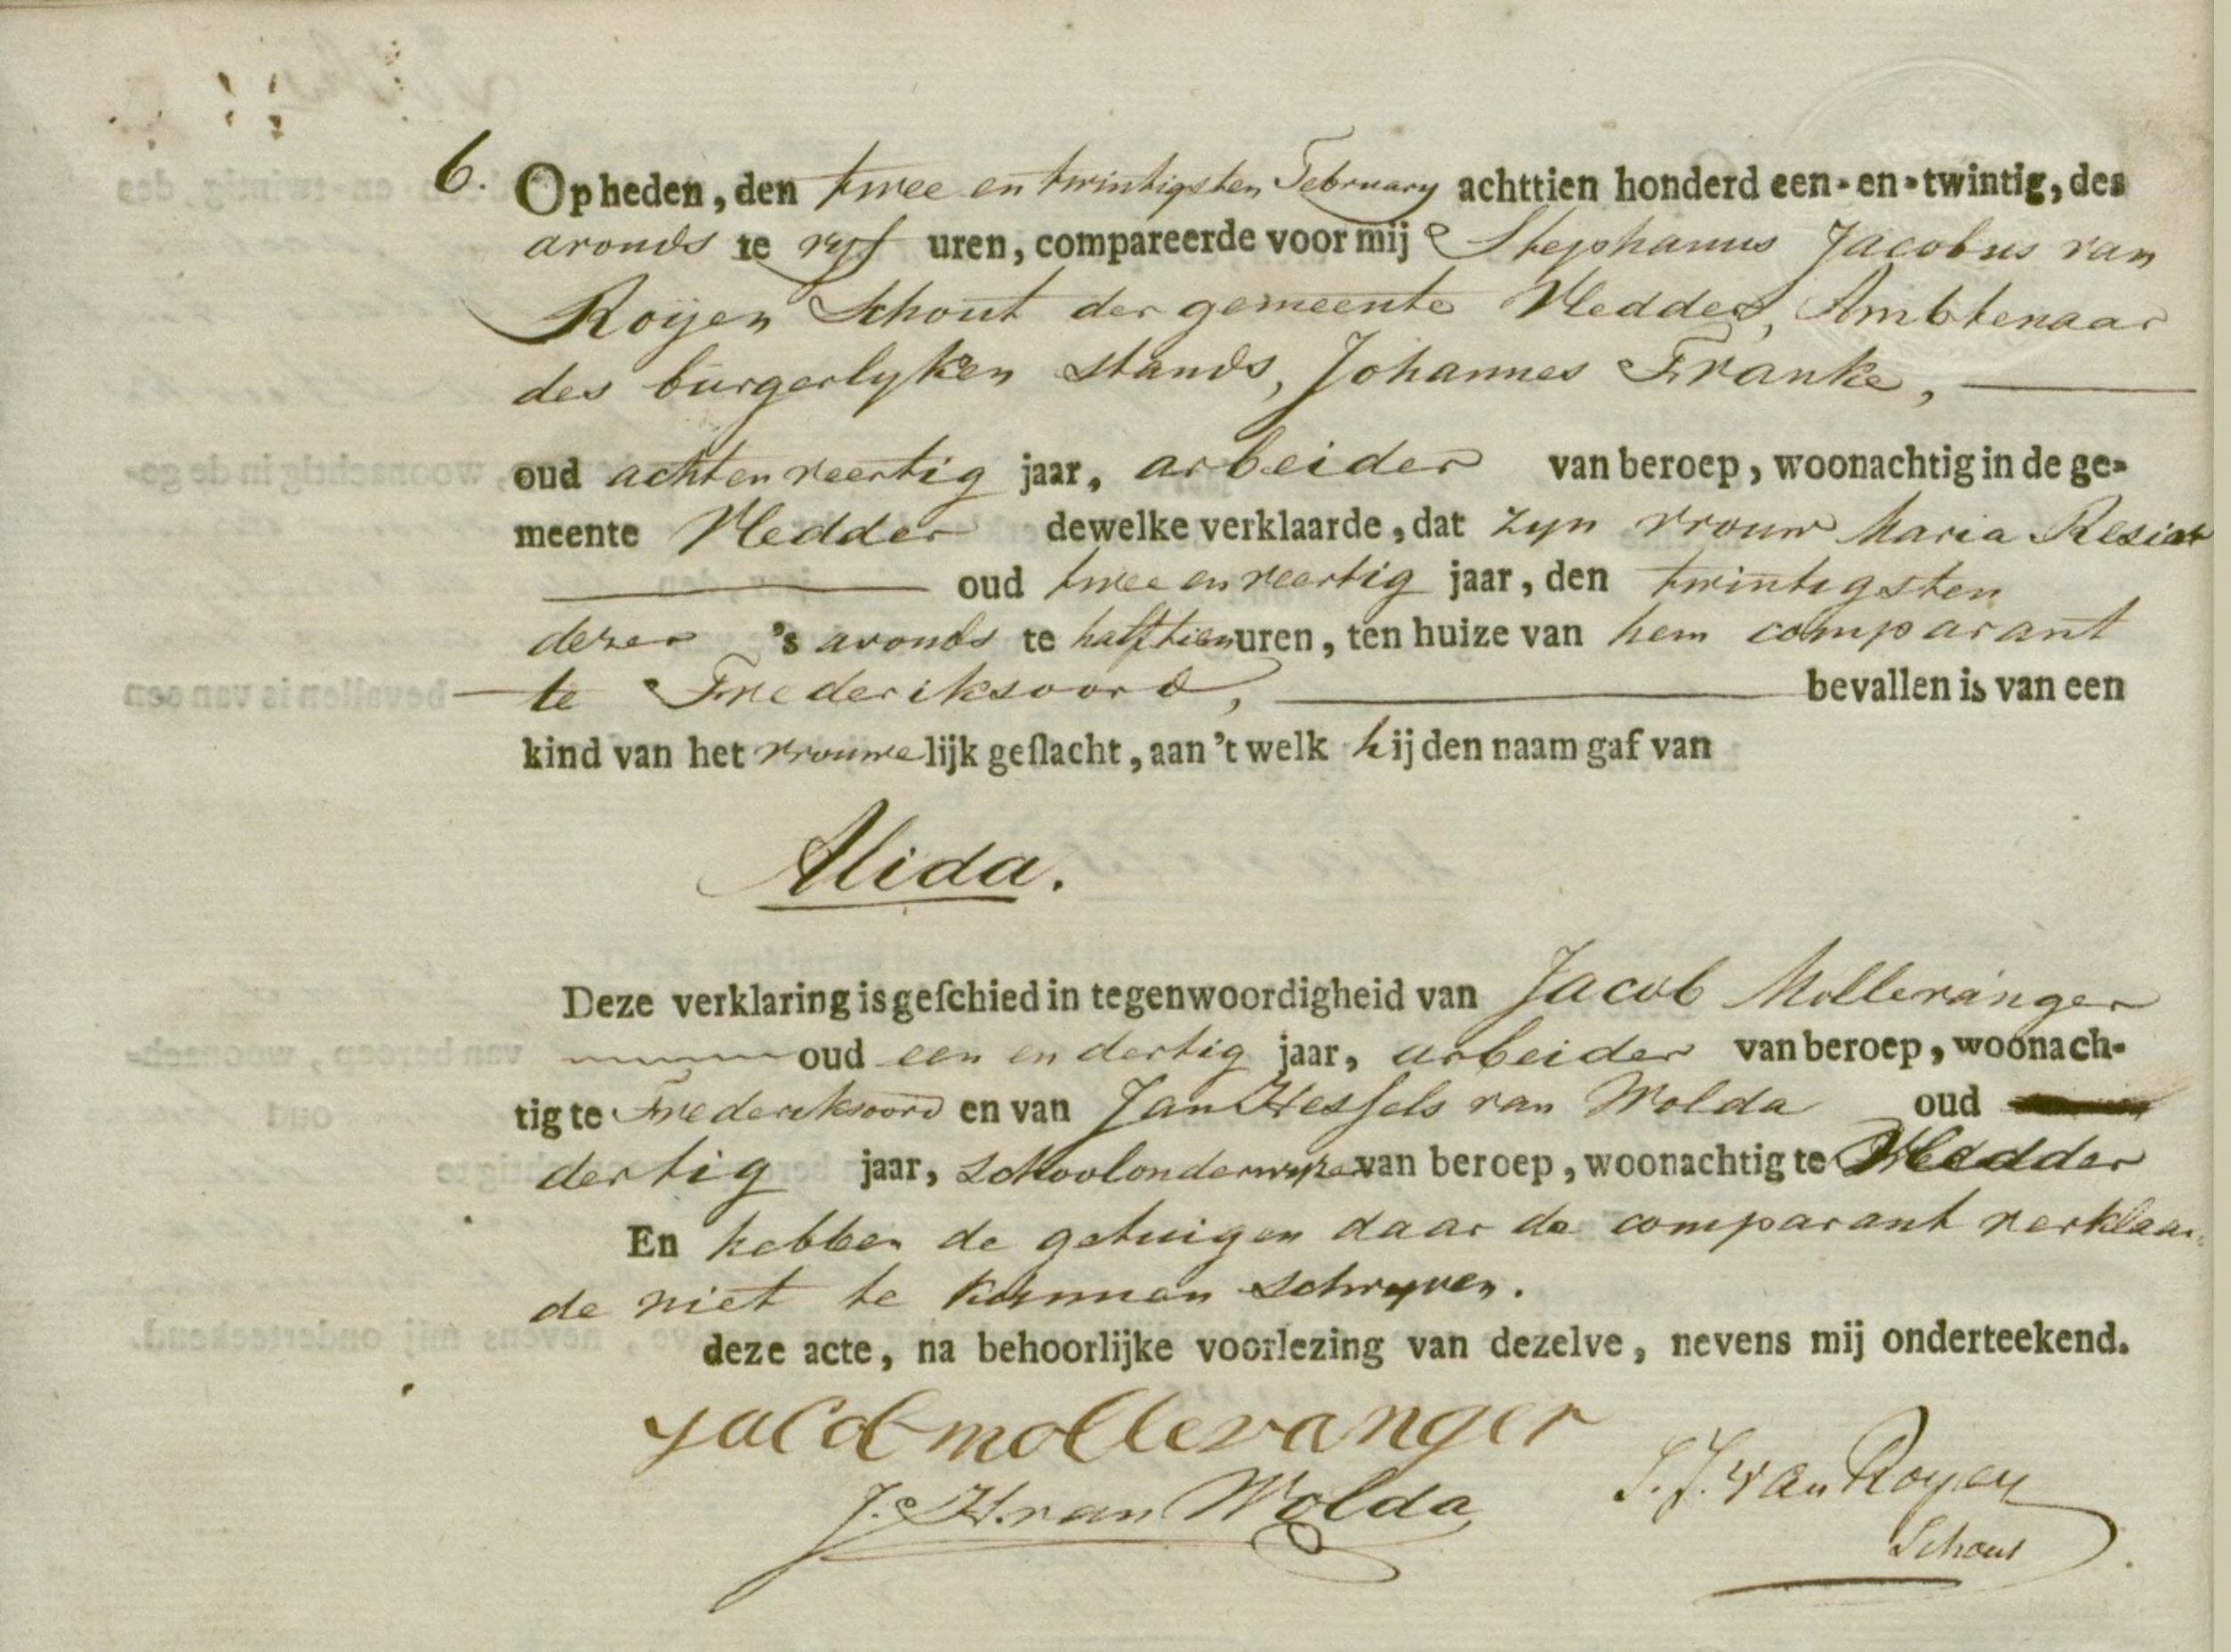 6. Op heden, den twee en twintigsten February achttien honderd een-en-twintig, des
avonds te vyf uren, compareerde voor mij Stephanus Jacobus van
Royen Schout der gemeente Vledder, Ambtenaar
des burgerlyken stands, Johannes Franke,
oud achtenveertig jaar, arbeider van beroep, woonachtig in de ge-
meente Vledder dewelke verklaarde, dat zyn vrouw Maria
oud twee en veertig jaar, den twintigsten
dezer 's avonds te half tien uren, ten huize van hem comparant
te Frederiksoord, bevallen is van een
kind van het vrouwelijk geslacht, aan 't welk hij den naam gaf van
Alida.
Deze verklaring is geschied in tegenwoordigheid van Jacob Mollevanger
oud een en dertig jaar, arbeider van beroep, woonach-
tig te Frederiksoord en van Jan Hessels van Wolda oud
dertig jaar, schoolonderwyzer van beroep, woonachtig te Vledder
En hebben de getuigen daar de comparant verklaar-
de niet te kunnen schryven.
deze acte, na behoorlijke voorlezing van dezelve, nevens mij onderteekend.
Jacob mollevanger
J. H. van Wolda
S. J. van Royen
Schout